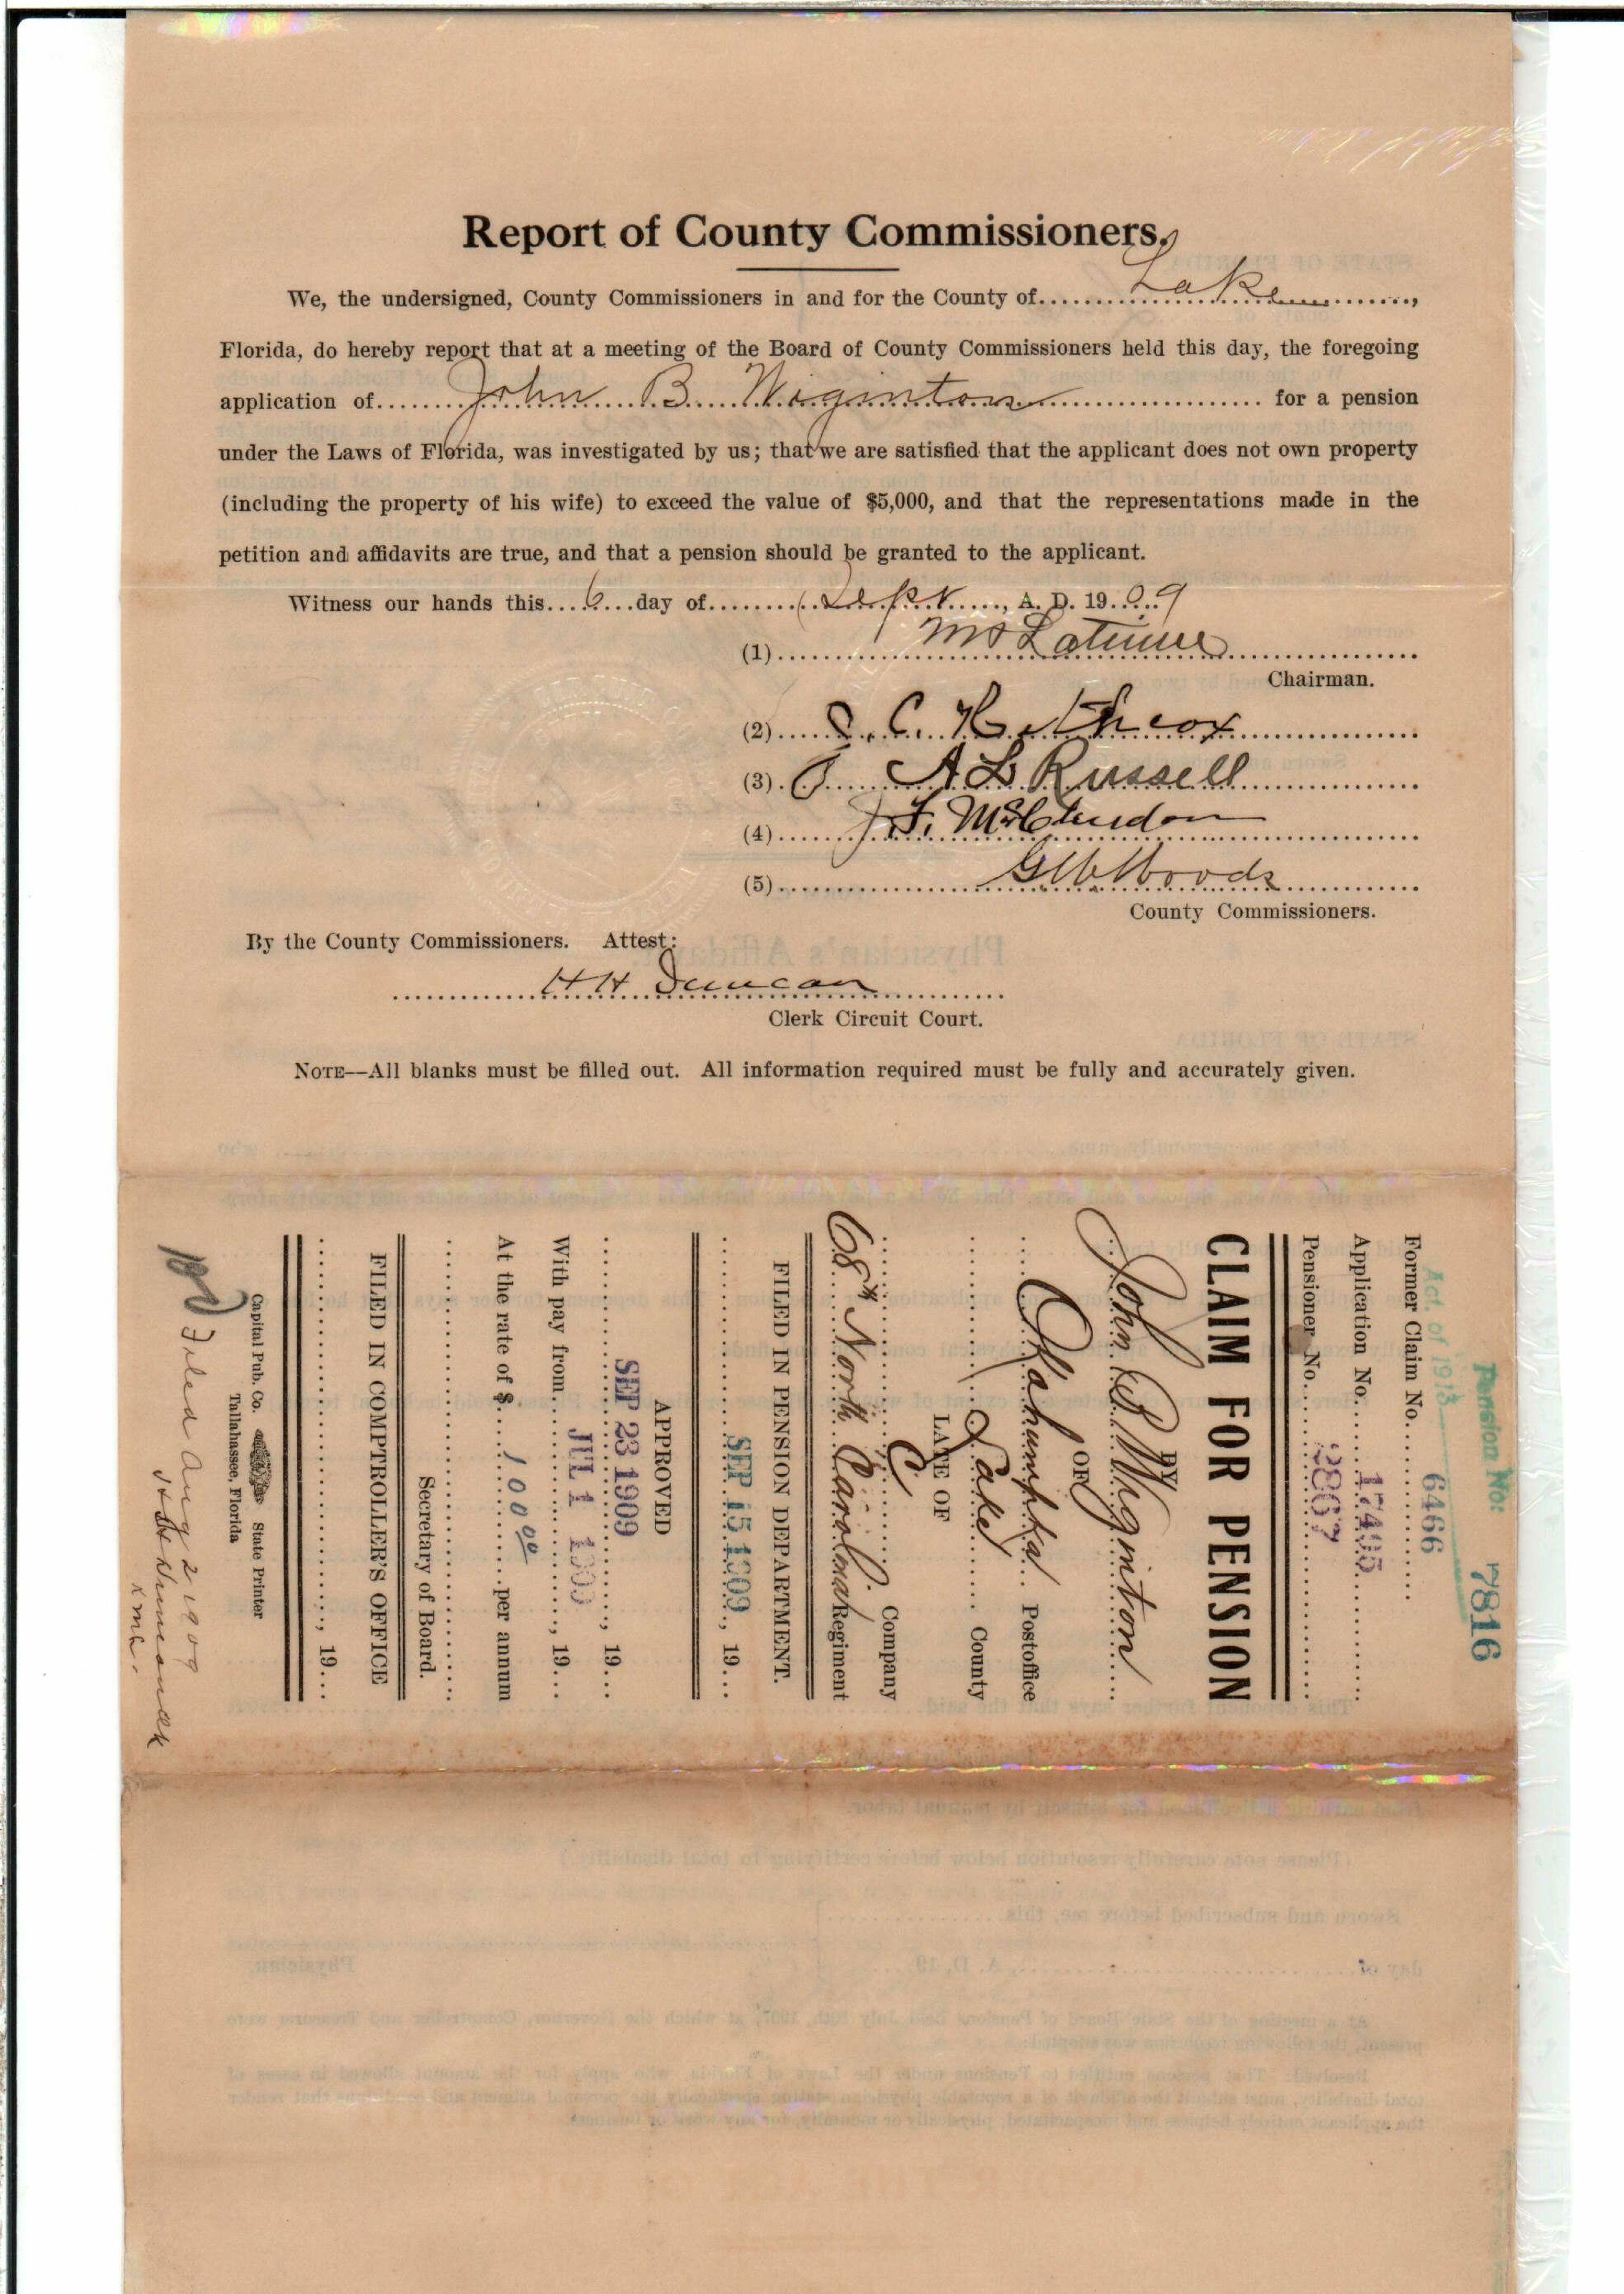 Report of County Commissioners.
We, the undersigned, County Commissioners in and for the County of Lake,
Florida, do hereby report that at a meeting of the Board of County Commissioners held this day, the foregoing
application of John B. Wiginton for a pension
under the Laws of Florida, was investigated by us; that we are satisfied that the applicant does not own property
(including the property of his wife) to exceed the value of $5,000, and that the representations made in the
petition and affidavits are true, and that a pension should be granted to the applicant.
Witness our hands this 6 day of Sept, A. D. 1909
(1) Latimer
Chairman.
(2) C. H.
(3) A L Russell
(4) J. F. McClendon
(5) G W Woods
County Commissioners.
By the County Commissioners. Attest:
H H Duncan
Clerk Circuit Court.
NOTE—All blanks must be filled out. All information required must be fully and accurately given.
Pension No: 7816
Act. of 1913
Former Claim No. 6466
Application No. 17495
Pensioner No. 3867
CLAIM FOR PENSION
BY
John B Wiginton
OF
Okahumpka Postoffice
Lake County
LATE OF
C Company
68th North Carolina Regiment
FILED IN PENSION DEPARTMENT.
SEP 15 1909, 19
APPROVED
SEP 23 1909, 19
With pay from JUL 1 1909, 19
At the rate of $ 100 00 per annum
Secretary of Board.
FILED IN COMPTROLLER'S OFFICE
, 19
Capital Pub. Co. State Printer
Tallahassee, Florida
Filed Aug 2 1909